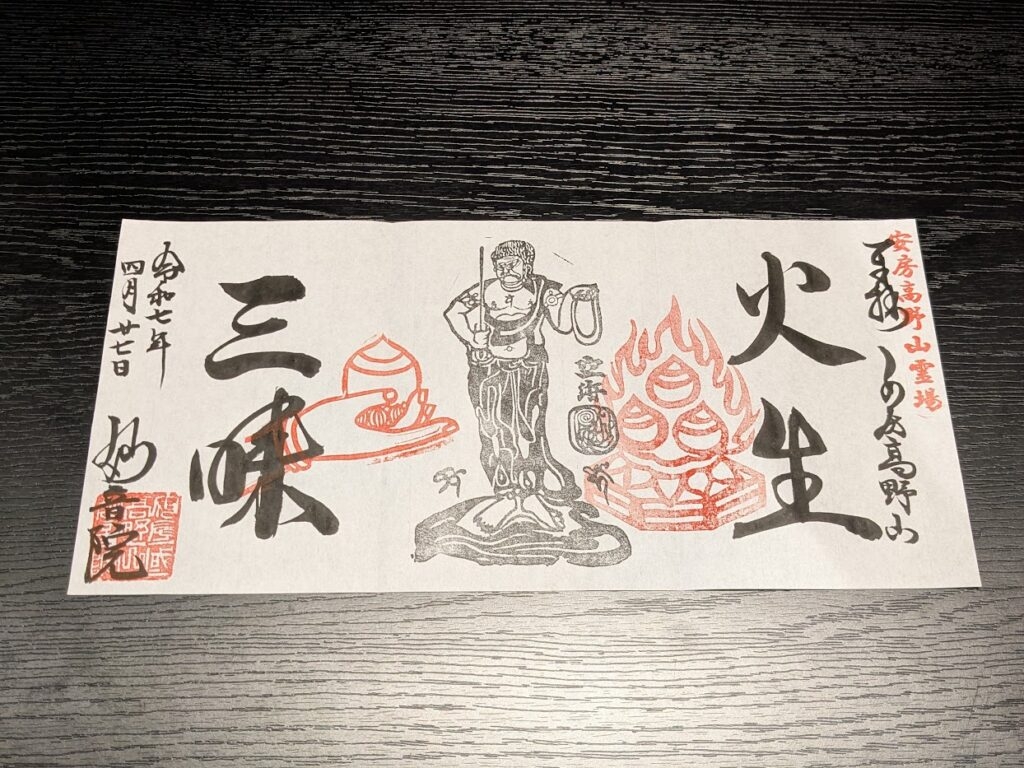 安房高野山霊場
奉拝 あわ高野山
火生
三昧
令和七年
四月廿七日
妙音院